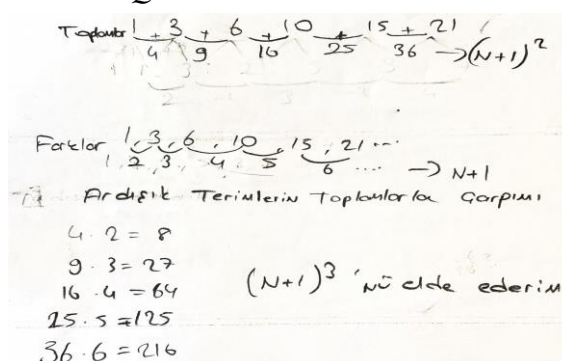 Toplamlar 1 + 3 + 6 + 10 + 15 + 21
4 9 16 25 36 → (N+1)²
Farklar 1, 3, 6, 10, 15, 21 ...
2, 3, 4 5 6 .... → N+1
Ardışık Terimlerin Toplamlarla Çarpımı
4 . 2 = 8
9 . 3 = 27
16 . 4 = 64 (N+1)³ 'nü elde ederim
25 . 5 = 125
36 . 6 = 216